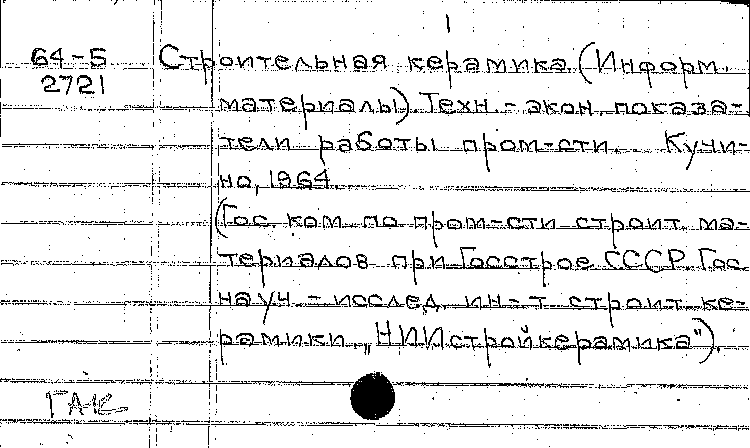 1
64-5 Строительная керамика. (Информ.
2721 материалы). Техн.-экон. показа-
тели работы пром-сти. Кучи-
но, 1964.
(Гос. ком. по пром-сти строит. ма-
териалов при Госстрое СССР. Гос.
науч.-исслед. ин-т строит. ке-
рамики „НИИстройкерамика").
ГАК